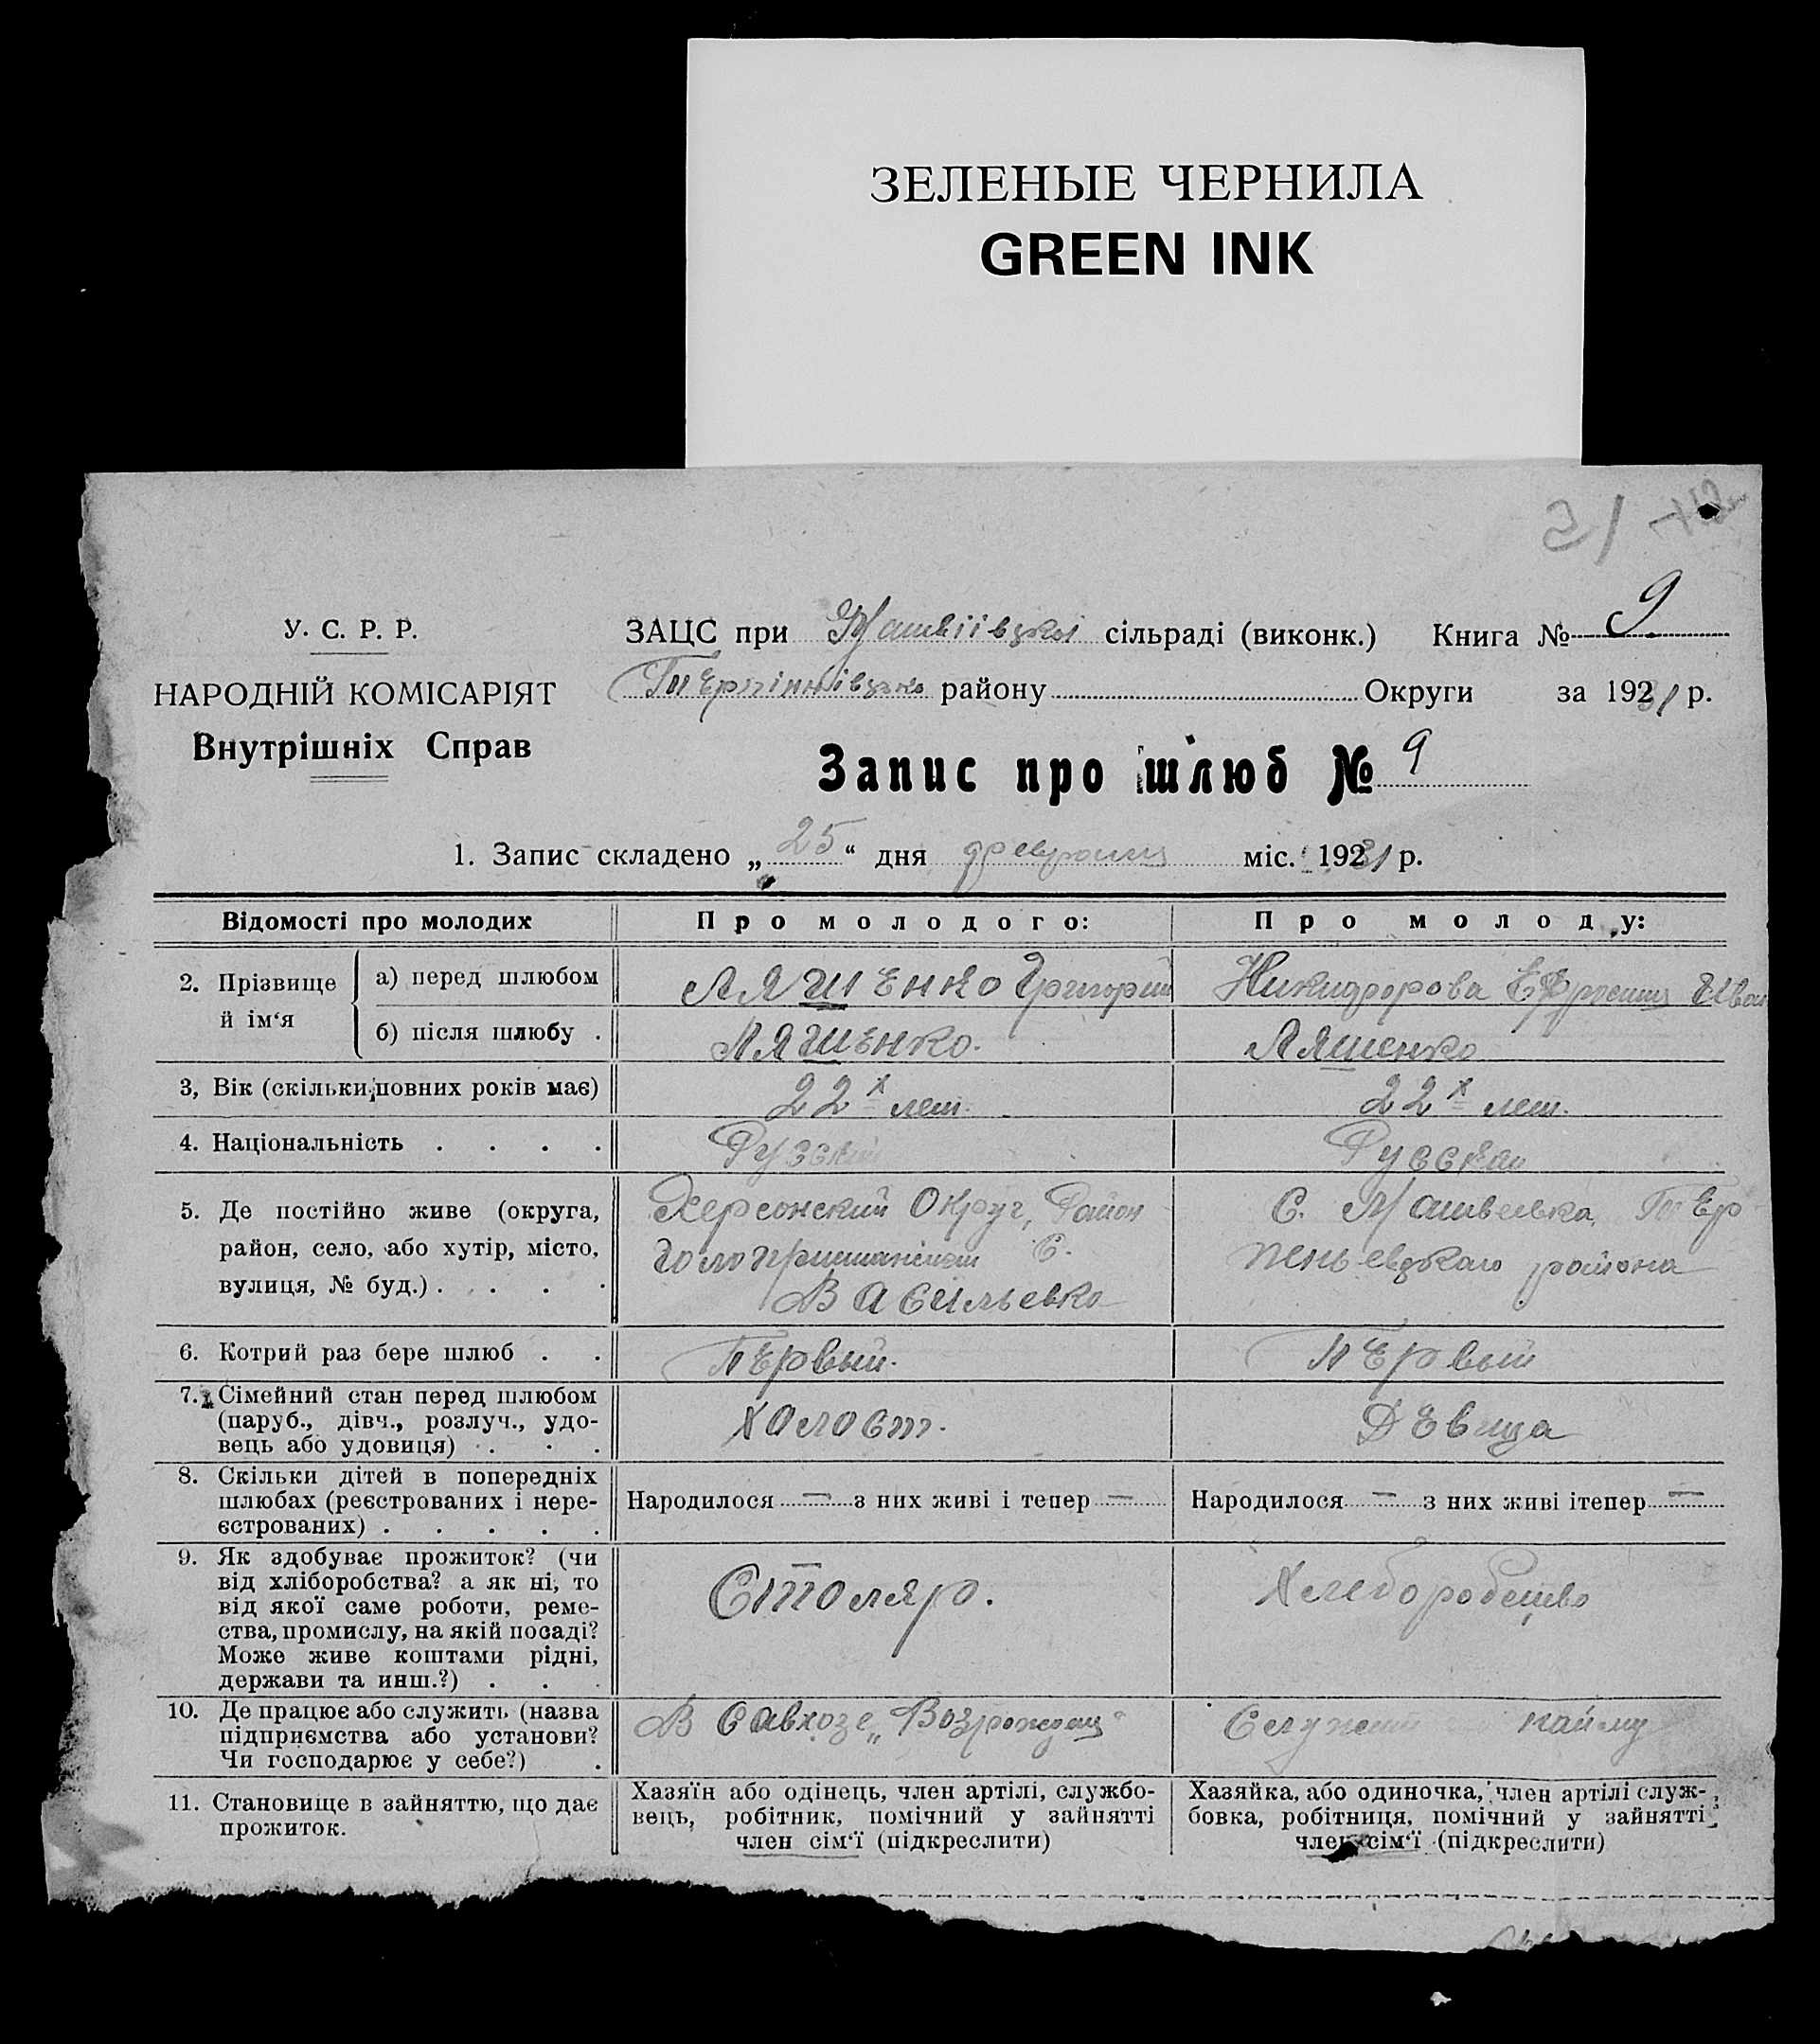 ЗЕЛЕНЫЕ ЧЕРНИЛА
GREEN INK
У. С. Р. Р.
НАРОДНІЙ КОМІСАРІЯТ
Внутрішніх Справ
ЗАЦС при Матвіівзкоі сільраді (виконк.) Книга № 9.
району Округи за 1931 р.
Запис про шлюб № 9
1. Запис складено „ 25 “ дня февраля міс. 1931 р.
Відомості про молодих
Про молодого:
Про молоду:
2. Прізвище й ім‘я
а) перед шлюбом
ЛЯШЕНКО Григорий
Никифорова Ефросиия Иван
б) після шлюбу .
ЛЯШЕНКО.
Ляшенко
3, Вік (скільки повних років має)
22х лет.
22х лет.
4. Національність . . . .
Рузский
Русская
5. Де постійно живе (округа,
район, село, або хутір, місто,
вулиця, № буд.) . . . .
Херсонский Округ, Район
С.
Васильевко
С. Матвеевка, ТЕр
пеньевзкаго района
6. Котрий раз бере шлюб . .
ПЕрвый.
ПЕрвый
7. Сімейний стан перед шлюбом
(паруб., дівч., розлуч., удо-
вець або удовиця) . . .
Холост.
ДЕвица
8. Скільки дітей в попередніх
шлюбах (реєстрованих і нере-
єстрованих) . . . . .
Народилося — з них живі і тепер —
Народилося — з них живі ітепер —
9. Як здобуває прожиток? (чи
від хліборобства? а як ні, то
від якої саме роботи, реме-
ства, промислу, на якій посаді?
Може живе коштами рідні,
держави та инш.?) . . .
Столяр.
Хлеборобство
10. Де працює або служить (назва
підприємства або установи?
Чи господарює у себе?) .
В Савхозе „
найму
11. Становище в зайняттю, що дає
прожиток.
Хазяїн або одінець, член артілі, службо-
вець, робітник, помічний у зайнятті
член сім‘ї (підкреслити)
Хазяйка, або одиночка, член артілі служ-
бовка, робітниця, помічний у зайнятті
член сім‘ї (підкреслити)